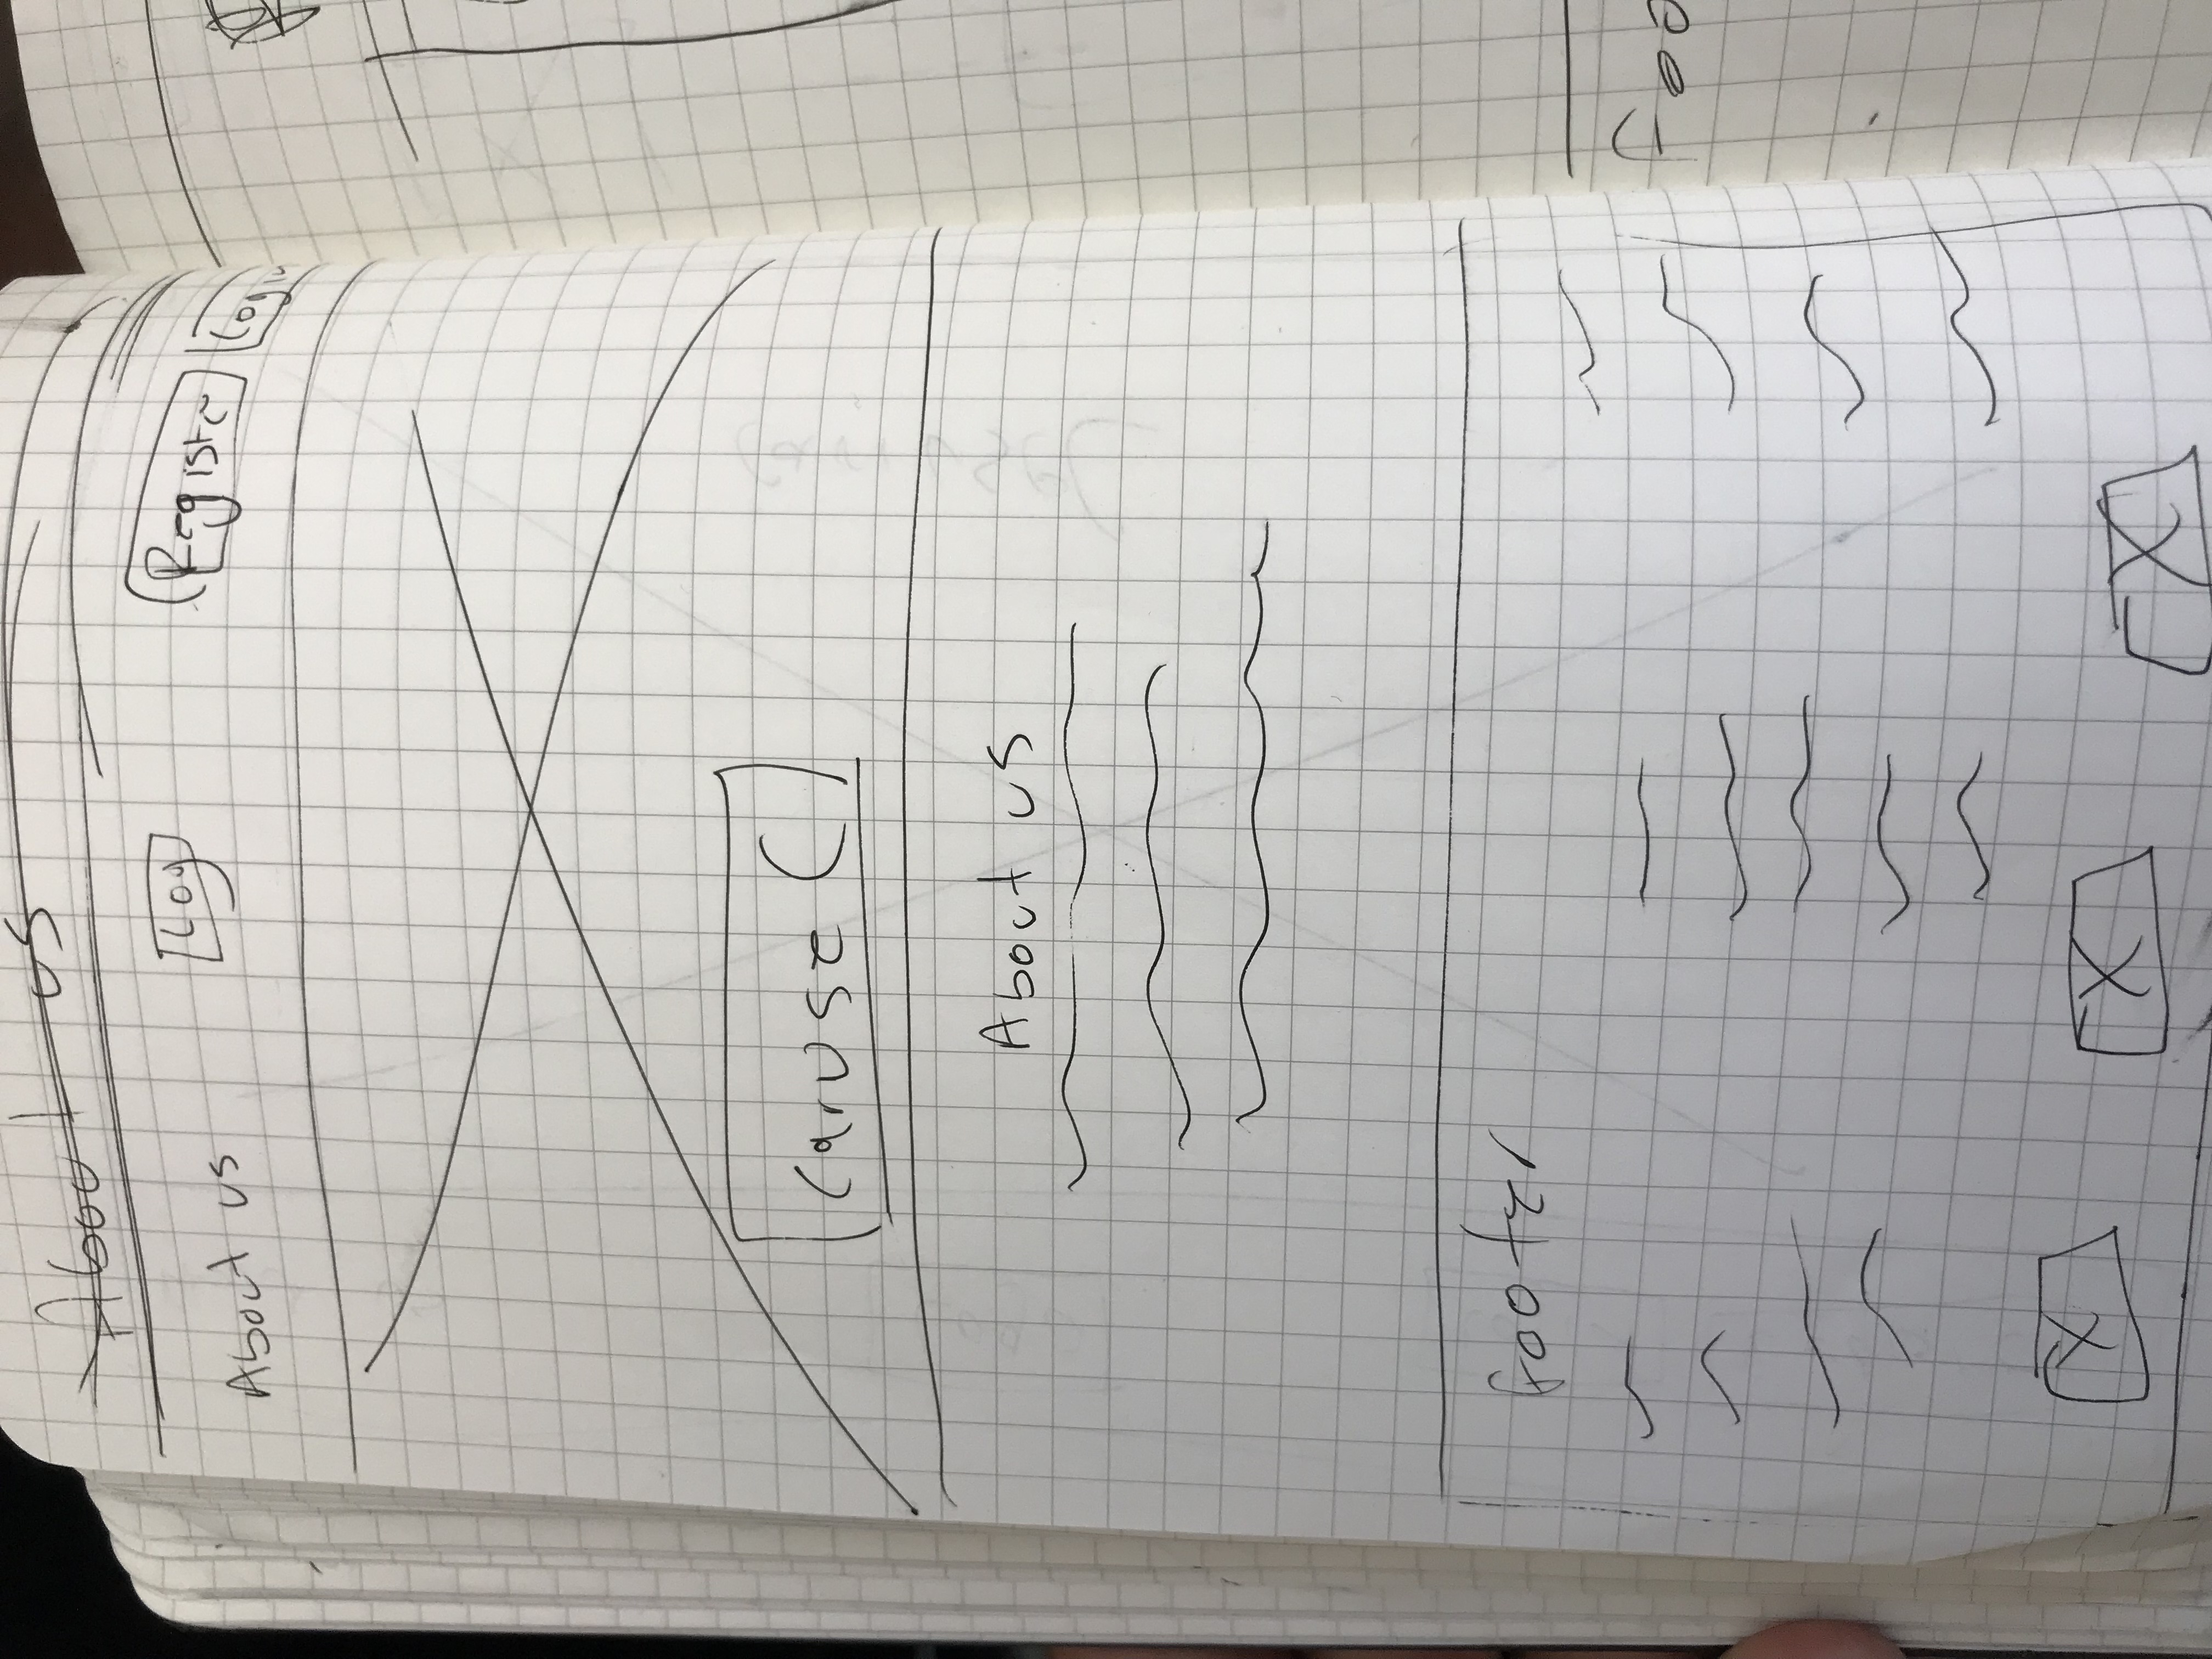 About us
About us
Log
Register
Login
Carusel
About us
Footer
Foo